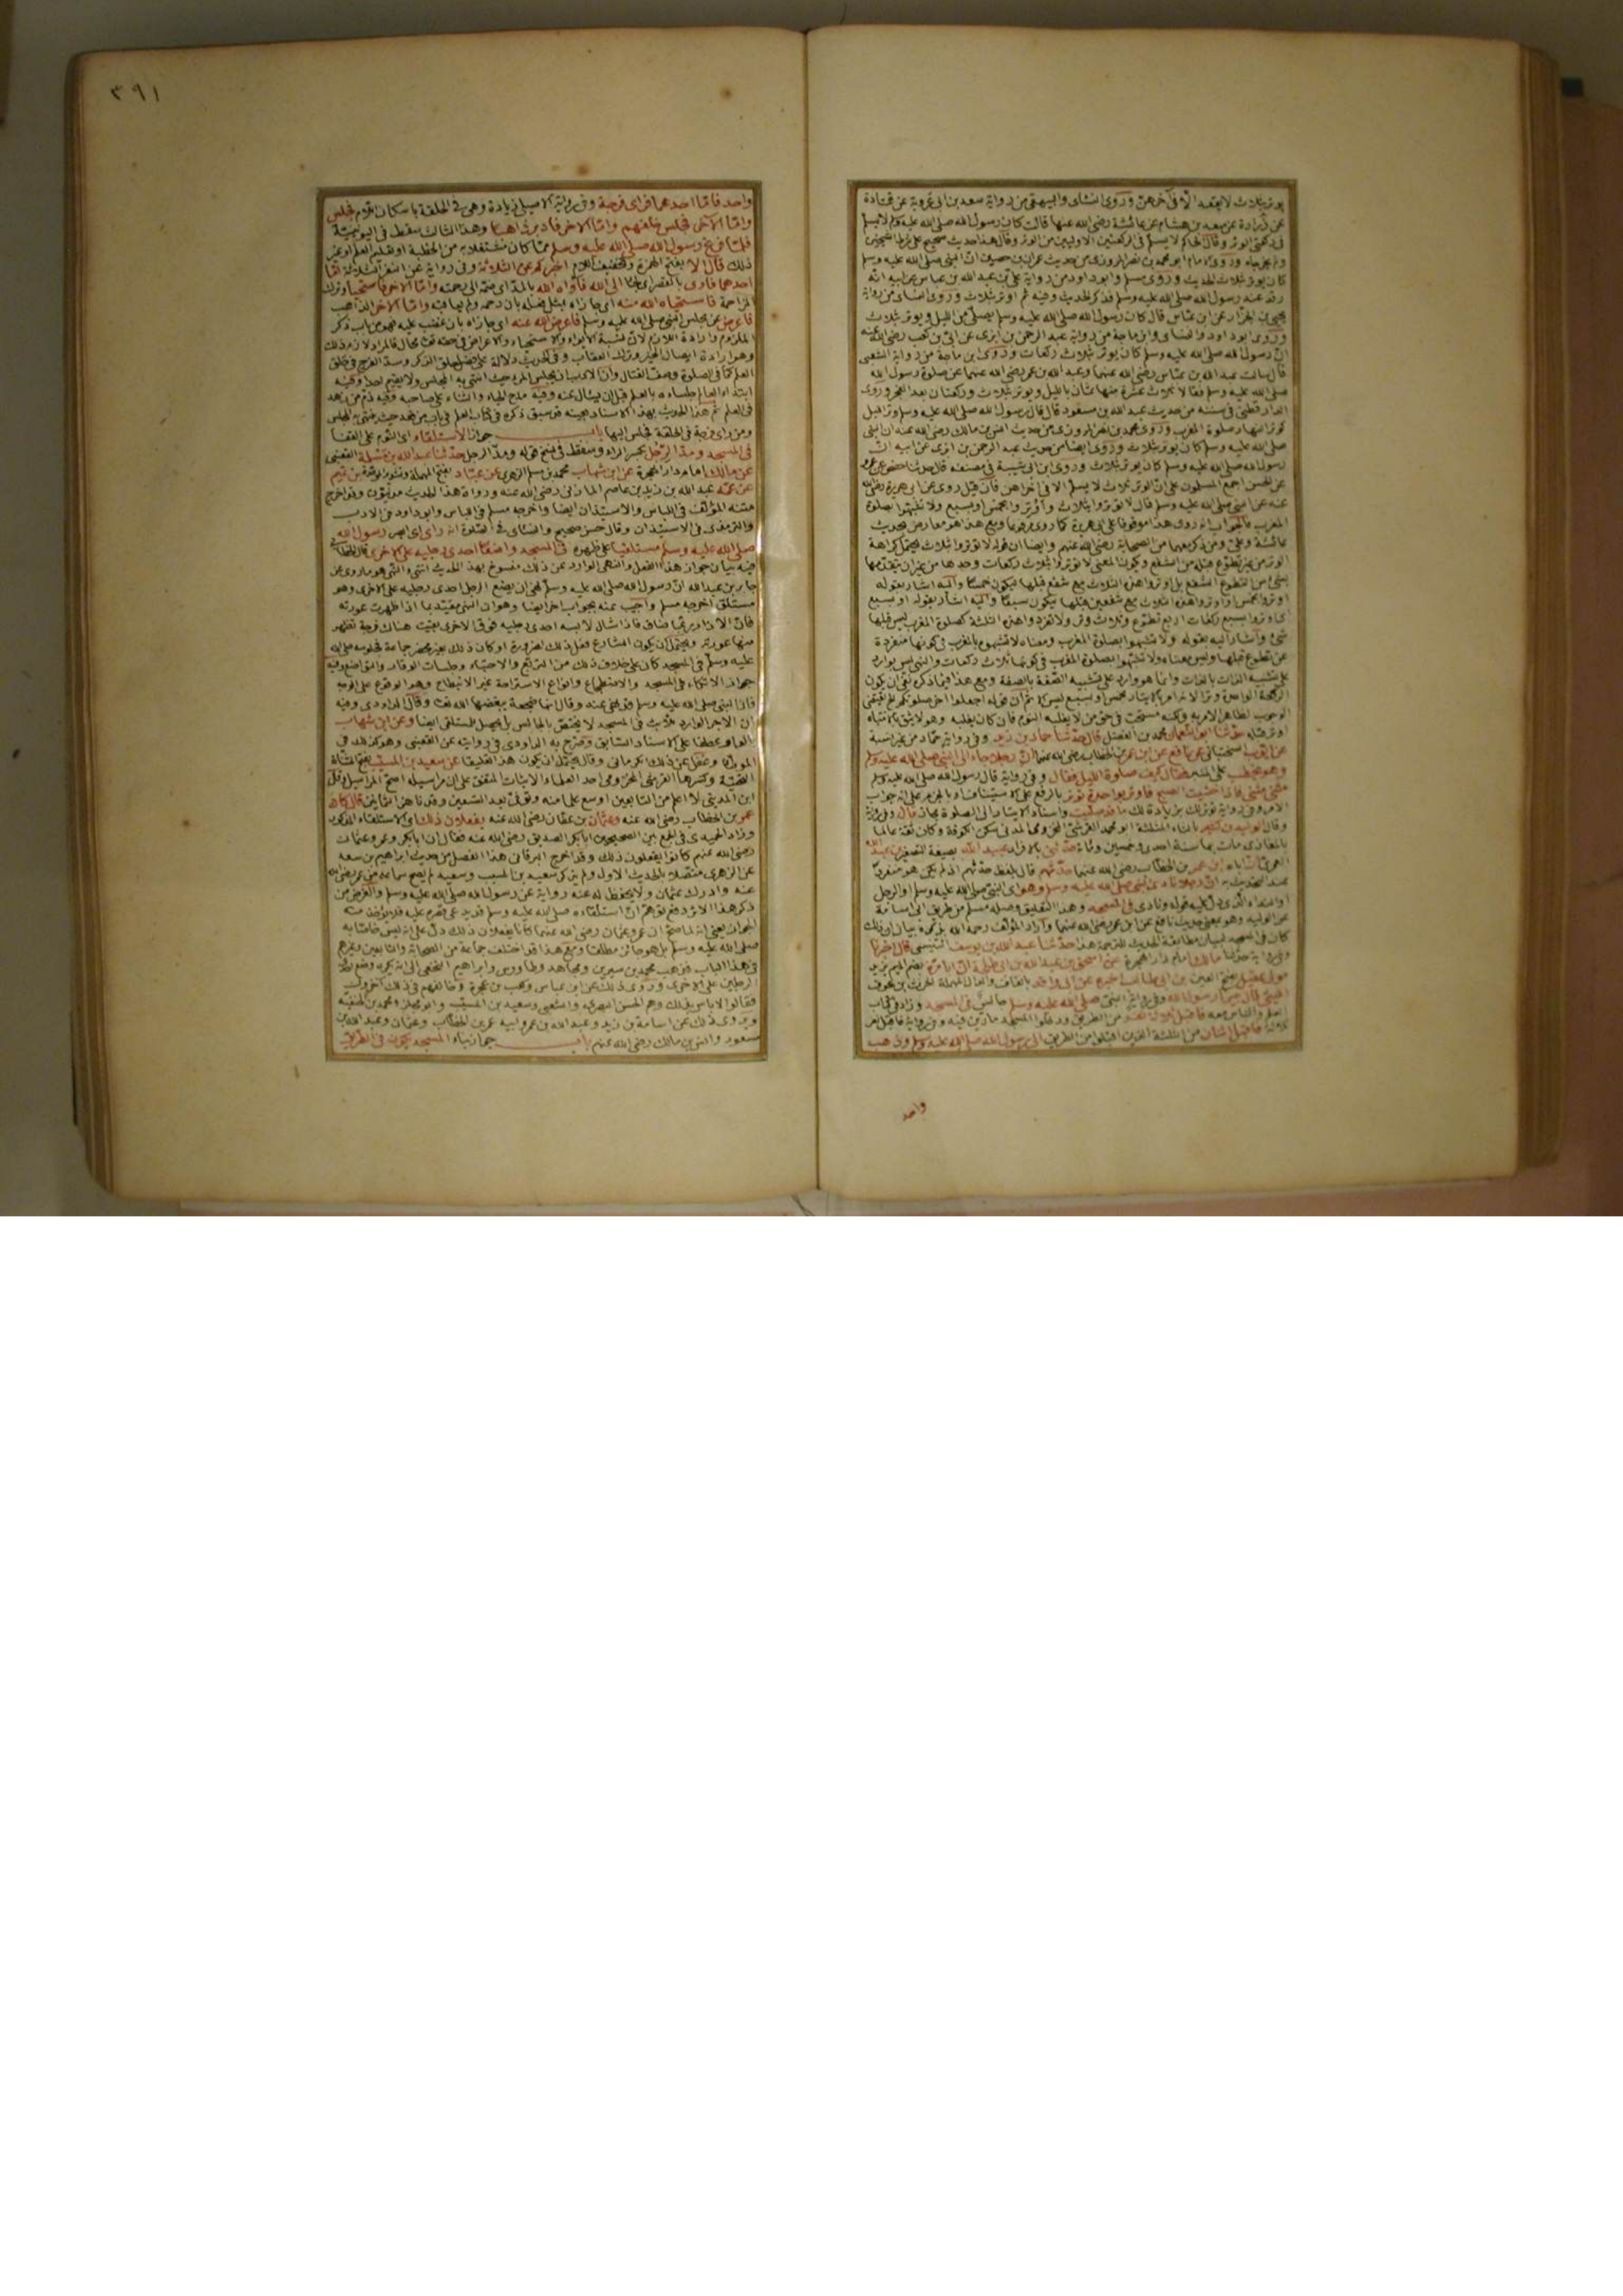 يوتر بثلاث لا يقعد الا في آخرهن وروى النسائى والبيهقى من رواية سعيد بن ابى عروبة عن قتادة
عن زرارة عن سعد بن هشام عن عائشة رضى الله عنها قالت كان رسول الله صلى الله عليه وسلم لا يسلم
فى ركعتى الوتر وقال الحاكم لا يسلم فى الركعتين الاوليين من الوتر وقال هذا حديث صحيح على شرط الشيخين
ولم يخرجاه وروى الامام ابو محمد بن نصر المروزى من حديث عمران بن حصين ان النبى صلى الله عليه وسلم
كان يوتر بثلاث الحديث وروى مسلم وابو داود من رواية على بن عبد الله بن عباس عن ابيه انه
رقد عند رسول الله صلى الله عليه وسلم فذكر الحديث وفيه ثم اوتر بثلاث وروى النسائى من رواية
يحيى بن الجزار عن ابن عباس قال كان رسول الله صلى الله عليه وسلم يصلى من الليل ويوتر بثلاث
وروى ابو داود والنسائى وابن ماجة من رواية عبد الرحمن بن ابزى عن ابى بن كعب رضى الله عنه
ان رسول الله صلى الله عليه وسلم كان يوتر بثلاث ركعات وروى ابن ماجة من رواية الشعبى
قال سالت عبد الله بن عباس رضى الله عنهما وعبد الله بن عمر رضى الله عنهما عن صلوة رسول الله
صلى الله عليه وسلم فقالا ثلاث عشرة منها ثمان بالليل ويوتر بثلاث وركعتان بعد الفجر وروى
الدارقطنى فى سننه من حديث عبد الله بن مسعود قال قال رسول الله صلى الله عليه وسلم وتر الليل
كوتر النهار صلوة المغرب وروى محمد بن نصر المروزى من حديث انس بن مالك رضى الله عنه ان النبى
صلى الله عليه وسلم كان يوتر بثلاث وروى ايضا من حديث عبد الرحمن بن ابزى عن ابيه ان
رسول الله صلى الله عليه وسلم كان يوتر بثلاث وروى ابن ابى شيبة فى مصنفه قال حدثنا حفص عن عمرو
عن الحسن اجمع المسلمون على ان الوتر ثلاث لا يسلم الا فى اخراهن فان قيل روى عن ابى هريرة رضى الله
عنه عن النبى صلى الله عليه وسلم قال لا توتروا بثلاث واوتروا بخمس او بسبع ولا تشبهوا بصلوة
المغرب فالجواب انه روى هذا موقوفا على ابى هريرة كما روى مرفوعا ومع هذا هو معارض بحديث
عائشة وعلى ومن ذكر معهما من الصحابة رضى الله عنهم وايضا ان قوله لا توتروا بثلاث يحتمل كراهة
الوتر من غير تطوع قبله من الشفع ويكون المعنى لا توتروا بثلاث ركعات وحدها من غير ان يتقدمها
شئ من التطوع الشفع بل اوتروا هذه الثلاث مع شفع قبلها ليكون خمسا واليه اشار بقوله
اوتروا بخمس او اوتروا هذه الثلاث مع شفعين قبلها ليكون سبعا واليه اشار بقوله او بسبع
شئ واشار اليه بقوله ولا تشبهوا بصلوة المغرب ومعناه لا تشبهوه بالمغرب فى كونها منفردة
عن تطوع قبلها وليس معناه ولا تشبهوا بصلوة المغرب فى كونها ثلاث ركعات والنهى ليس بوارد
على تشبيه الذات بالذات وانما هو وارد على تشبيه الصفة بالصفة ومع هذا
اوتر بثلاثه حدثنا ابو النعمان محمد بن الفضل قال حدثنا حماد بن زيد وفى رواية حماد من غير نسبة
عن ايوب السختيانى عن نافع عن ابن عمر بن الخطاب رضى الله عنهما ان رجلا جاء الى النبى صلى الله عليه وسلم
وهو يخطب على المنبر فقال كيف صلوة الليل فقال وفى رواية قال رسول الله صلى الله عليه وسلم
مثنى مثنى فاذا خشيت الصبح فاوتر بواحدة توتر بالرفع على الاستيناف او بالجزم على انه جواب
الامر وفى رواية توتر لك بزيادة لك ما قد صليت واسناد الايتار الى الصلوة مجاز قال
وقال الوليد بن كثير بالثاء المثلثة ابو محمد القرشى المخزومى المدنى سكن الكوفة وكان ثقة عالما
بالمغازى مات بها سنة احدى وخمسين ومائة حدثنى بالافراد عبيد الله بصيغة التصغير بن عبد الله
العمرى ان اباه ابن عمر بن الخطاب رضى الله عنهما حدثهم قال بلفظ حدثهم
ان رجلا نادى النبى صلى الله عليه وسلم وهو اى النبى صلى الله عليه وسلم او الرجل
فى المسجد وهذا التعليق وصله مسلم من طريق ابى اسامة
عن الوليد وهو بمعنى حديث نافع عن ابن عمر رضى الله عنهما
حدثنا عبد الله بن يوسف التنيسى قال اخبرنا
مالك امام دار الهجرة عن اسحق بن عبد الله بن ابى طلحة ان ابا مرة بضم الميم
مولى عقيل بفتح العين بن ابى طالب اخبره عن ابى واقد بالقاف والدال المهملة الحرث بن عوف
الليثى قال بينما رسول الله وفى رواية النبى صلى الله عليه وسلم جالس فى المسجد وزاد فى كتاب
العلم والناس معه فاقبل ثلاثة نفر من الطريق ودخلوا المسجد مارين فيه
فاقبل اثنان من الثلثة الذين اقبلوا من الطريق الى رسول الله صلى الله عليه وسلم وذهب
واحد
٣٩١
واحد فاما احدهما فراى فرجة وفى رواية الاصيلى زيادة وهى فى الحلقة باسكان اللام فجلس
واما الآخر فجلس خلفهم واما الاخر فادبر ذاهبا وهذا الثالث سقط فى اليونينية
فلما فرغ رسول الله صلى الله عليه وسلم مما كان مشتغلا به من الخطبة او تعليم العلم او غير
ذلك قال الا بفتح الهمزة وتخفيف اللام اخبركم عن الثلاثة وفى رواية عن النفر الثلاثة اما
احدهم فاوى بالقصر اى لجأ الى الله فآواه الله بالمد اى ضمه الى رحمته واما الاخر فاستحيا وترك
المزاحمة فاستحياه الله منه اى جازاه بمثل فعله بان رحمه ولم يعاقبه واما الاخر الذاهب
فاعرض عن مجلس النبى صلى الله عليه وسلم فاعرض الله عنه اى جازاه بان غضب عليه فهو من باب ذكر
الملزوم وارادة اللازم لان نسبة الايواء والاستحياء والاعراض فى حقه تعالى محال فالمراد لازم ذلك
وهو ارادة ايصال الخير وترك العقاب وفى الحديث دلالة على فضل حلق الذكر وسد الفرج فى حلق
العلم كما فى الصلوة وصف القتال وان الادب ان يجلس المرء حيث انتهى به المجلس ولا يقيم احدا وفيه
ابتداء العالم جلساءه بالعلم قبل ان يسال عنه وفيه مدح الحياء والثناء على صاحبه وفيه ذم من زهد
فى العلم ثم هذا الحديث بهذا الاسناد بعينه قد سبق ذكره فى كتاب العلم فى باب من قعد حيث ينتهى به المجلس
ومن راى فرجة فى الحلقة فجلس اليها باب جواز الاستلقاء اى النوم على القفا
فى المسجد ومد الرجل بكسر الراء وسقط فى نسخ قوله ومد الرجل حدثنا عبد الله بن مسلمة القعنبى
عن مالك امام دار الهجرة عن ابن شهاب محمد بن مسلم الزهرى عن عباد بفتح المهملة وتشديد الموحدة بن تميم
عن عمه عبد الله بن زيد بن عاصم المازنى رضى الله عنه ورواة هذا الحديث مدنيون وقد اخرج
متنه المؤلف فى اللباس والاستيذان ايضا واخرجه مسلم فى اللباس وابو داود فى الادب
والترمذى فى الاستيذان وقال حسن صحيح والنسائى فى الصلوة انه راى اى ابصر رسول الله
صلى الله عليه وسلم مستلقيا على ظهره فى المسجد واضعا احدى رجليه على الاخرى قال الخطابى
فيه بيان جواز هذا الفعل والنهى الوارد عن ذلك منسوخ بهذا الحديث انتهى والنهى هو ما روى عن
جابر بن عبد الله ان رسول الله صلى الله عليه وسلم نهى ان يضع الرجل احدى رجليه على الاخرى وهو
مستلق اخرجه مسلم واجيب عنه بجواب اخر ايضا وهو ان النهى مقيد بما اذا ظهرت عورته
فان الازار ربما ضاق فاذا شال لابسه احدى رجليه فوق الاخرى بقيت هناك فرجة تظهر
منها عورته ويحتمل ان يكون الشارع فعل ذلك لضرورة او كان ذلك بغير محضر جماعة فجلوسه صلى الله
عليه وسلم فى المسجد كان على خلاف ذلك من التربع والاحتباء وجلسات الوقار والتواضع وفيه
جواز الاتكاء فى المسجد والاضطجاع وانواع الاستراحة غير الانبطاح وهو الوقوع على الوجه
فان النبى صلى الله عليه وسلم قد نهى عنه وقال انها ضجعة يبغضها الله تعالى وقال الداودى وفيه
ان الاجر الوارد للابث فى المسجد لا يختص بالجالس بل يحصل للمستلقى ايضا وعن ابن شهاب
بالواو عطفا على الاسناد السابق وصرح به الداودى فى روايته عن القعنبى وهو كذلك فى
الموطا وغفل عن ذلك الكرمانى وقال يحتمل ان يكون هذا تعليقا عن سعيد بن المسيب بفتح المثناة
التحتية وكسرها القرشى المخزومى احد العلماء الاثبات المتفق على ان مراسيله اصح المراسيل وقال
ابن المدينى لا اعلم من التابعين اوسع علما منه وتوفى بعد التسعين وقد ناهز الثمانين قال كان
عمر بن الخطاب رضى الله عنه وعثمان بن عفان رضى الله عنه يفعلان ذلك اى الاستلقاء المذكور
وزاد الحميدى فى الجمع بين الصحيحين ابا بكر الصديق رضى الله عنه فقال ان ابا بكر وعمر وعثمان
رضى الله عنهم كانوا يفعلون ذلك وقد اخرج البرقانى هذا الفصل من حديث ابراهيم بن سعد
عن الزهرى متصلا بالحديث الاول ولم يذكر سعيد بن المسيب وسعيد لم يصح سماعه من عمر رضى الله
عنه وادرك عثمان ولا يحفظ له عنه رواية عن رسول الله صلى الله عليه وسلم والغرض من
ذكر هذا الاثر دفع توهم ان استلقاءه صلى الله عليه وسلم
الجواز يعنى انه لما صح ان عمر وعثمان رضى الله عنهما كانا يفعلان ذلك دل على انه ليس خاصا به
صلى الله عليه وسلم بل هو جائز مطلقا ومع هذا قد اختلف جماعة من الصحابة والتابعين وغيرهم
فى هذا الباب فذهب محمد بن سيرين ومجاهد وطاوس وابراهيم النخعى الى انه يكره وضع احدى
الرجلين على الاخرى وروى ذلك عن ابن عباس وكعب بن عجرة وخالفهم فى ذلك آخرون
فقالوا لا باس بذلك وهم الحسن البصرى والشعبى وسعيد بن المسيب وابو مجلز ومحمد بن الحنفية
ويروى ذلك عن اسامة بن زيد وعبد الله بن عمر وابيه عمر بن الخطاب وعثمان وعبد الله بن
مسعود وانس بن مالك رضى الله عنهم باب جواز بناء المسجد يكون فى الطريق